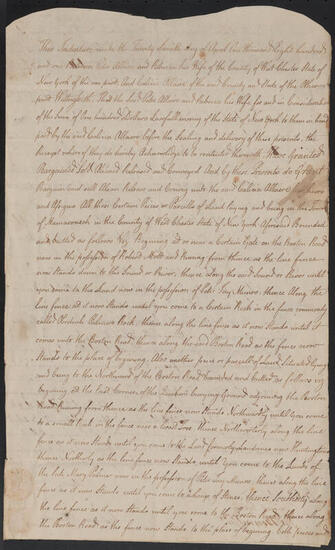 This Indenture made the Twenty Seventh day of April One thousand Eight hundred
and one Between Peter Allaire and Rebecca his Wife of the County of West Chester State of
New York of the one part And Andrew Allaire of the said County and State of the other
part Witnesseth That the said Peter Allaire and Rebecca his Wife for and in Consideration
of the Sum of One hundred Dollars lawfull money of the State of New York to them in hand
paid by the said Andrew Allaire before the Sealing and delivery of these presents, the
Receipt whereof they do hereby Acknowledge to be contented therewith Have Granted
Bargained Sold Aliened Released and Conveyed And by these Presents do Grant
Bargain and sell Alien Release and Convey unto the said Andrew Allaire
and Assigns All those Certain Pieces or Parcells of Land lying and being in the Town
of Mamaroneck in the County of West Chester State of New York Aforesaid Bounded
and butted as follows Viz Beginning at or near a Certain Gate on the Boston Road
now in the possession of Richard Mott and Running from thence as the line fence
now Stands down to the Sound or River thence along the said Sound or River until
you come to the Land now in the possession of Peter Jay Munro thence Along the
line fence as it now Stands until you come to a Certain Rock in the fence commonly
called Obadiah Palmers Rock thence along the line fence as it now Stands until it
comes unto the Boston Road thence along the said Boston Road as the fence now
Stands to the place of beginning Also another piece or parcell of Land Situate lying
and being to the Northward of the Boston Road bounded and butted as follows viz
Beginning at the East Corner of the Quakers burying Ground adjoining the Boston
Road Running from thence as the line fence now Stands Northwardly until you come
to a small Rock in the fence near a thence Northwesterly along the line
fence as it now Stands until you come to the Land formerly now Huntington
thence Northerly as the line fence now Stands until you come to the Lands of
the late Mary Palmer now in the possession of Peter Jay Munro thence along the line
fence as it now Stands until you come to a heap of Stones thence Southerly along
the line fence as it now Stands until you come to the Boston Road thence along
the Boston Road as the fence now Stands to the place of beginning Both pieces and